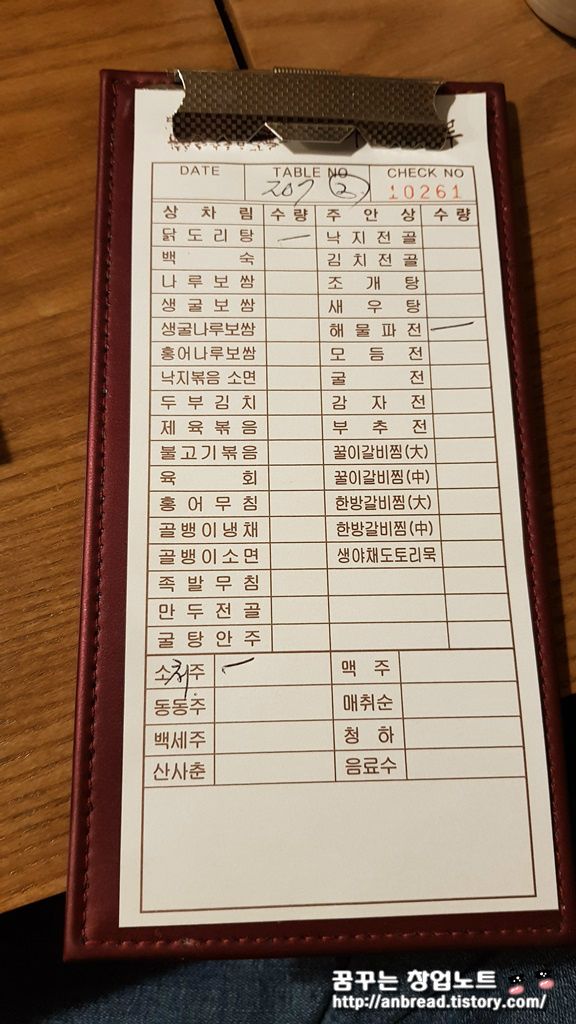 DATE TABLE NO CHECK NO
207 ② 10261
상차림 수량 주안상 수량
닭도리탕 낙지전골
백숙 김치전골
나루보쌈 조개탕
생굴보쌈 새우탕
생굴나루보쌈 해물파전
홍어나루보쌈 모듬전
낙지볶음 소면 굴전
두부김치 감자전
제육볶음 부추전
불고기볶음 꿀이갈비찜(大)
육회 꿀이갈비찜(中)
홍어무침 한방갈비찜(大)
골뱅이냉채 한방갈비찜(中)
골뱅이소면 생야채도토리묵
족발무침
만두전골
굴탕안주
소주 처 맥주
동동주 매취순
백세주 청하
산사춘 음료수
꿈꾸는 창업노트
http://anbread.tistory.com/